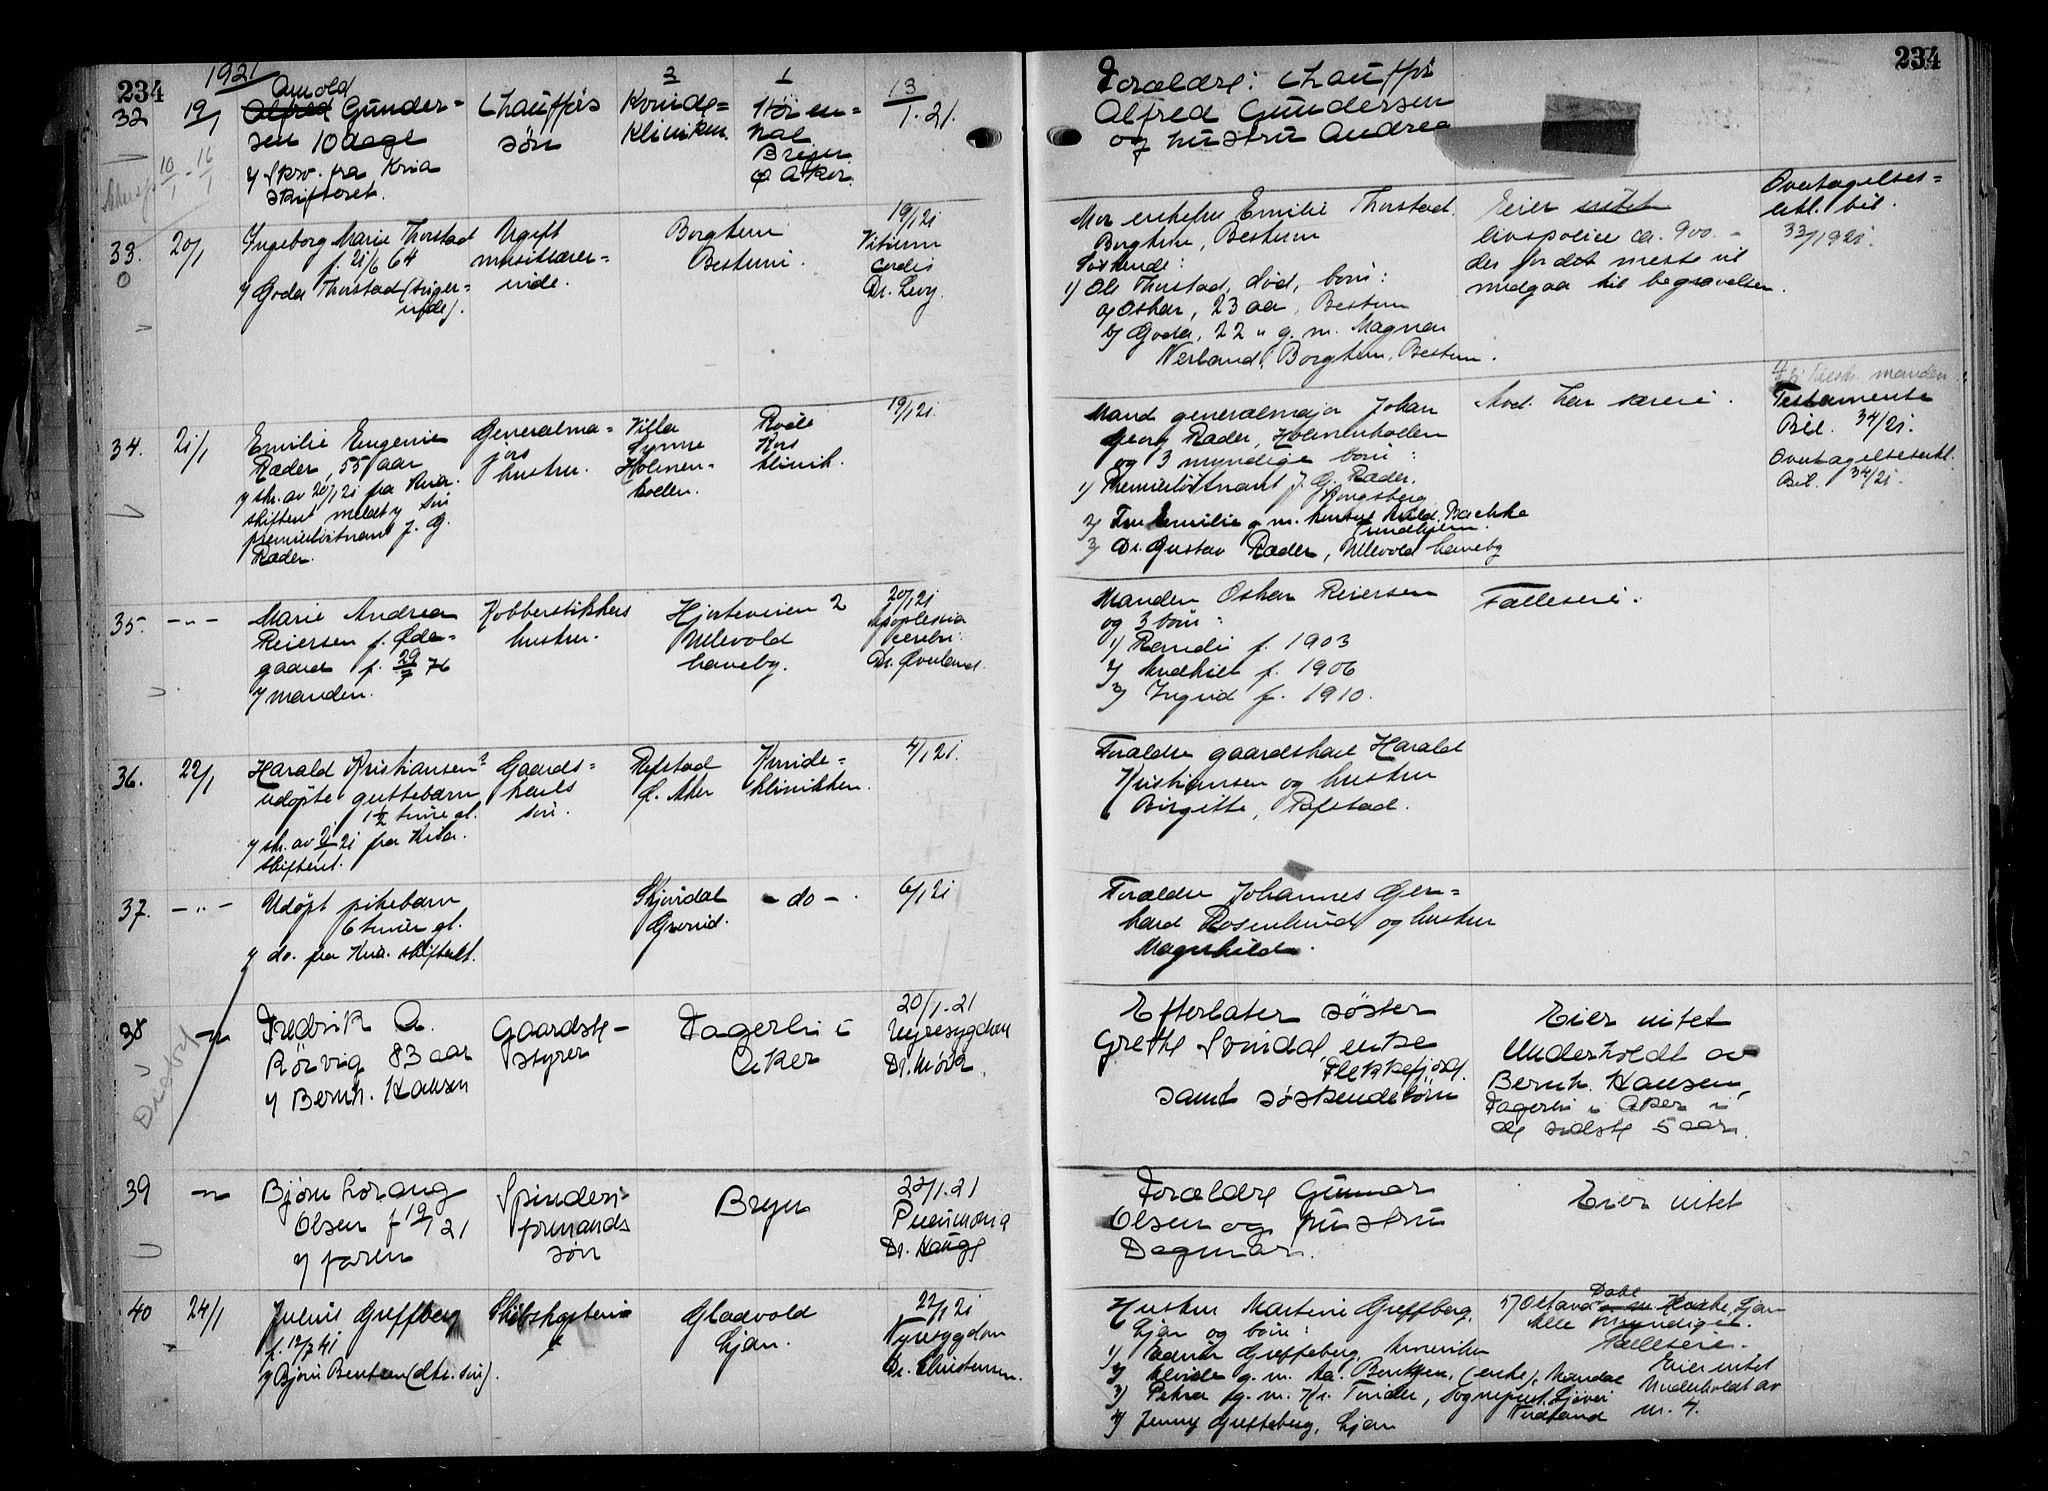 234
1921
32
19/1
Arnold
Alfred Gunder=
sen 10 dage
y skr. fra Kria
skifteret.
Chaufførs
søn
3
Kvinde=
kliniken.
1
nal
Bryn
Ø Aker.
13
1.21.
10/1 - 16/1
33.
0
20/1
Ingeborg Marie Thorstad
f. 21/6 64
y Goda Thorstad (sviger=
inde).
Ugift
musiklærer=
inde.
Borghem
Bestum.
19/1 21
Vitium
cordis
Dr. Levy.
34.
21/1
Emilie Eugenie
Ræder, 55 aar
y skr. av 20/1 21 fra Kria.
skifteret meldt y søn
premierløitnant J. G.
Ræder.
Generalma=
jors
hustru.
Villa
Synne
Holmen=
kollen.
Røde
Kors
klinik.
19/1 21.
35.
- " -
Marie Andrea
Reiersen f. Øde=
gaard f. 29/7 76
y manden.
Kobberstikkers
hustru.
Hjorteveien 2
Ullevold
haveby.
20/1 21
Apoplexia
cerebri.
Dr. Øverland.
36.
22/1
Harald Kristiansen?
udøpte guttebarn
1½ time gl.
y skr. av 21/1 21 fra Kria.
skifteret.
Gaards=
karls
søn.
Refstad
Ø. Aker
Kvinde=
klinikken.
4/1 21.
37.
- " -
Udøpt pikebarn
6 timer gl.
y do. fra Kria. skifteret.
Skjøndal
Grorud.
- do -
6/1 21
38
- " -
Fredrik A.
Rørvig 83 aar
y Bernh. Hansen
Gaardsbe-
styrer
Fagerli i
Aker
20/1.21
Nyresygdom
Dr. Mørk.
39
- " -
Bjørn Lorang
Olsen f 19/1 21
y faren
Spinderi-
formands
søn
Bryn
22/1.21
Pneumonia
Dr. Hauge
40
24/1
Julius Greffberg
f. 12/7 41
y Bjørn Bentsen (dtr. søn).
Skibskaptein
Gladvold
Ljan.
22/1 21
Nyresygdom
Dr. Christensen.
234
Forældre: Chauffør
Alfred Gundersen
og hustru Andrea
Mor enkefru Emilie Thorstad.
Borghem, Bestum
Søskende:
1) Ole Thorstad, død, børn:
a) Oskar, 23 aar, Bestum
b) Goda, 22 " g. m. Magnar
Nerland, Borghem, Bestum.
Eier intet
livspolice ca. 900.-
der for det meste vil
medgaa til begravelsen.
Overtagelses=
erkl. bil.
33/1921.
Mand generalmajor Johan
Georg Ræder, Holmenkollen
og 3 myndige børn:
1) Premierløitnant J. G. Ræder.
Kongsberg
2) Fru Emilie g. m. Bachke
Trondhjem.
3) Dr. Gustav Ræder, Ullevold haveby
Avd. har særeie.
manden
Testamente
Bil. 34/21.
Overtagelseserkl.
Bil. 34/21.
Manden Oskar Reiersen
og 3 børn:
1) Randi f. 1903
2) Audhild f. 1906
3) Ingrid f. 1910.
Fælleseie.
Forældre gaardskarl Harald
Kristiansen og hustru
Birgitte, Refstad.
Forældre Johannes Ger=
hard Rosenlund og hustru
Magnhild.
Efterlater søster
Grethe Svindal, enke
Flekkefjord.
samt søskendebørn
Eier intet
Underholdt av
Bernh. Hansen,
Fagerli i Aker i
de sidste 5 aar.
Forældre Gunnar
Olsen og hustru
Dagmar.
Eier intet
Hustru Martine Greffberg,
Ljan og børn:
1) Greffberg, Amerika
2) g. m. Bentsen, (enke), Mandal
3) Petra g. m. Hr. sogneprest
Nordland
4) Jenny Greffberg, Ljan
5) Octavia Dahl Ljan
Alle myndige.
Fælleseie.
Eier intet
Underholdt av
nr. 4.